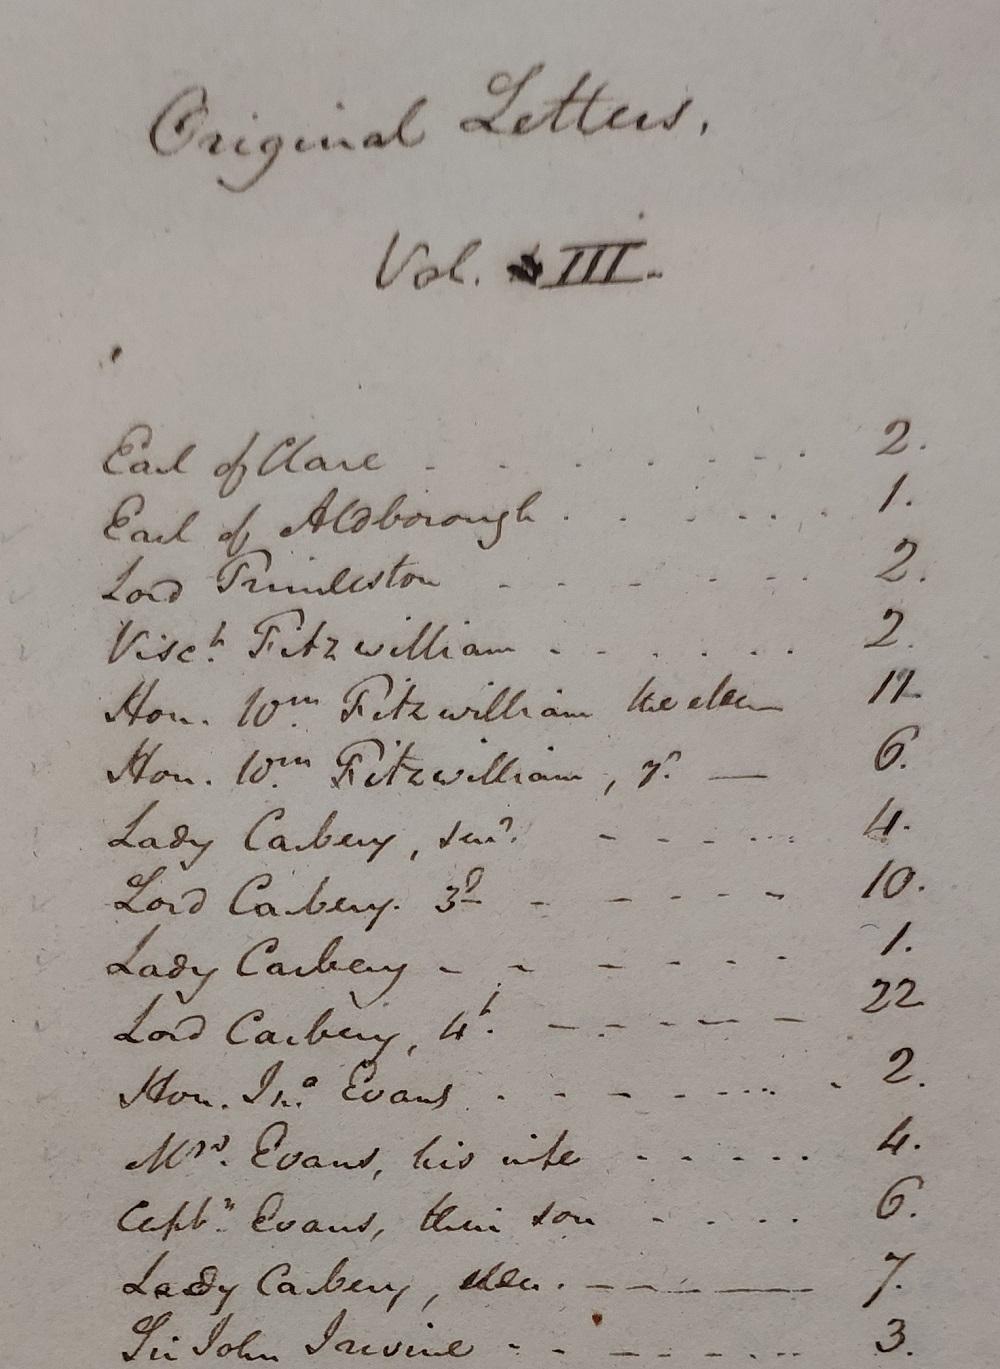 Original Letters.
Vol. III.
Earl of Clare - - - - - - 2.
Earl of Aldborough - - - - - 1.
Lord Trimleston - - - - - 2.
Visct. Fitzwilliam - - - - - 2.
Hon. Wm. Fitzwilliam the elder — 11.
Hon. Wm. Fitzwilliam, yr. — 6.
Lady Carbery, senr. - - - - 4.
Lord Carbery. 3d - - - - - 10.
Lady Carbery - - - - - - 1.
Lord Carbery, 4t. - - - - - 22
Hon. Jno. Evans - - - - - - 2.
Mrs. Evans, his wife - - - - - 4.
Captn. Evans, their son - - - - 6.
Lady Carbery, elder. - - - - 7.
Sir John Irwine - - - - - - 3.